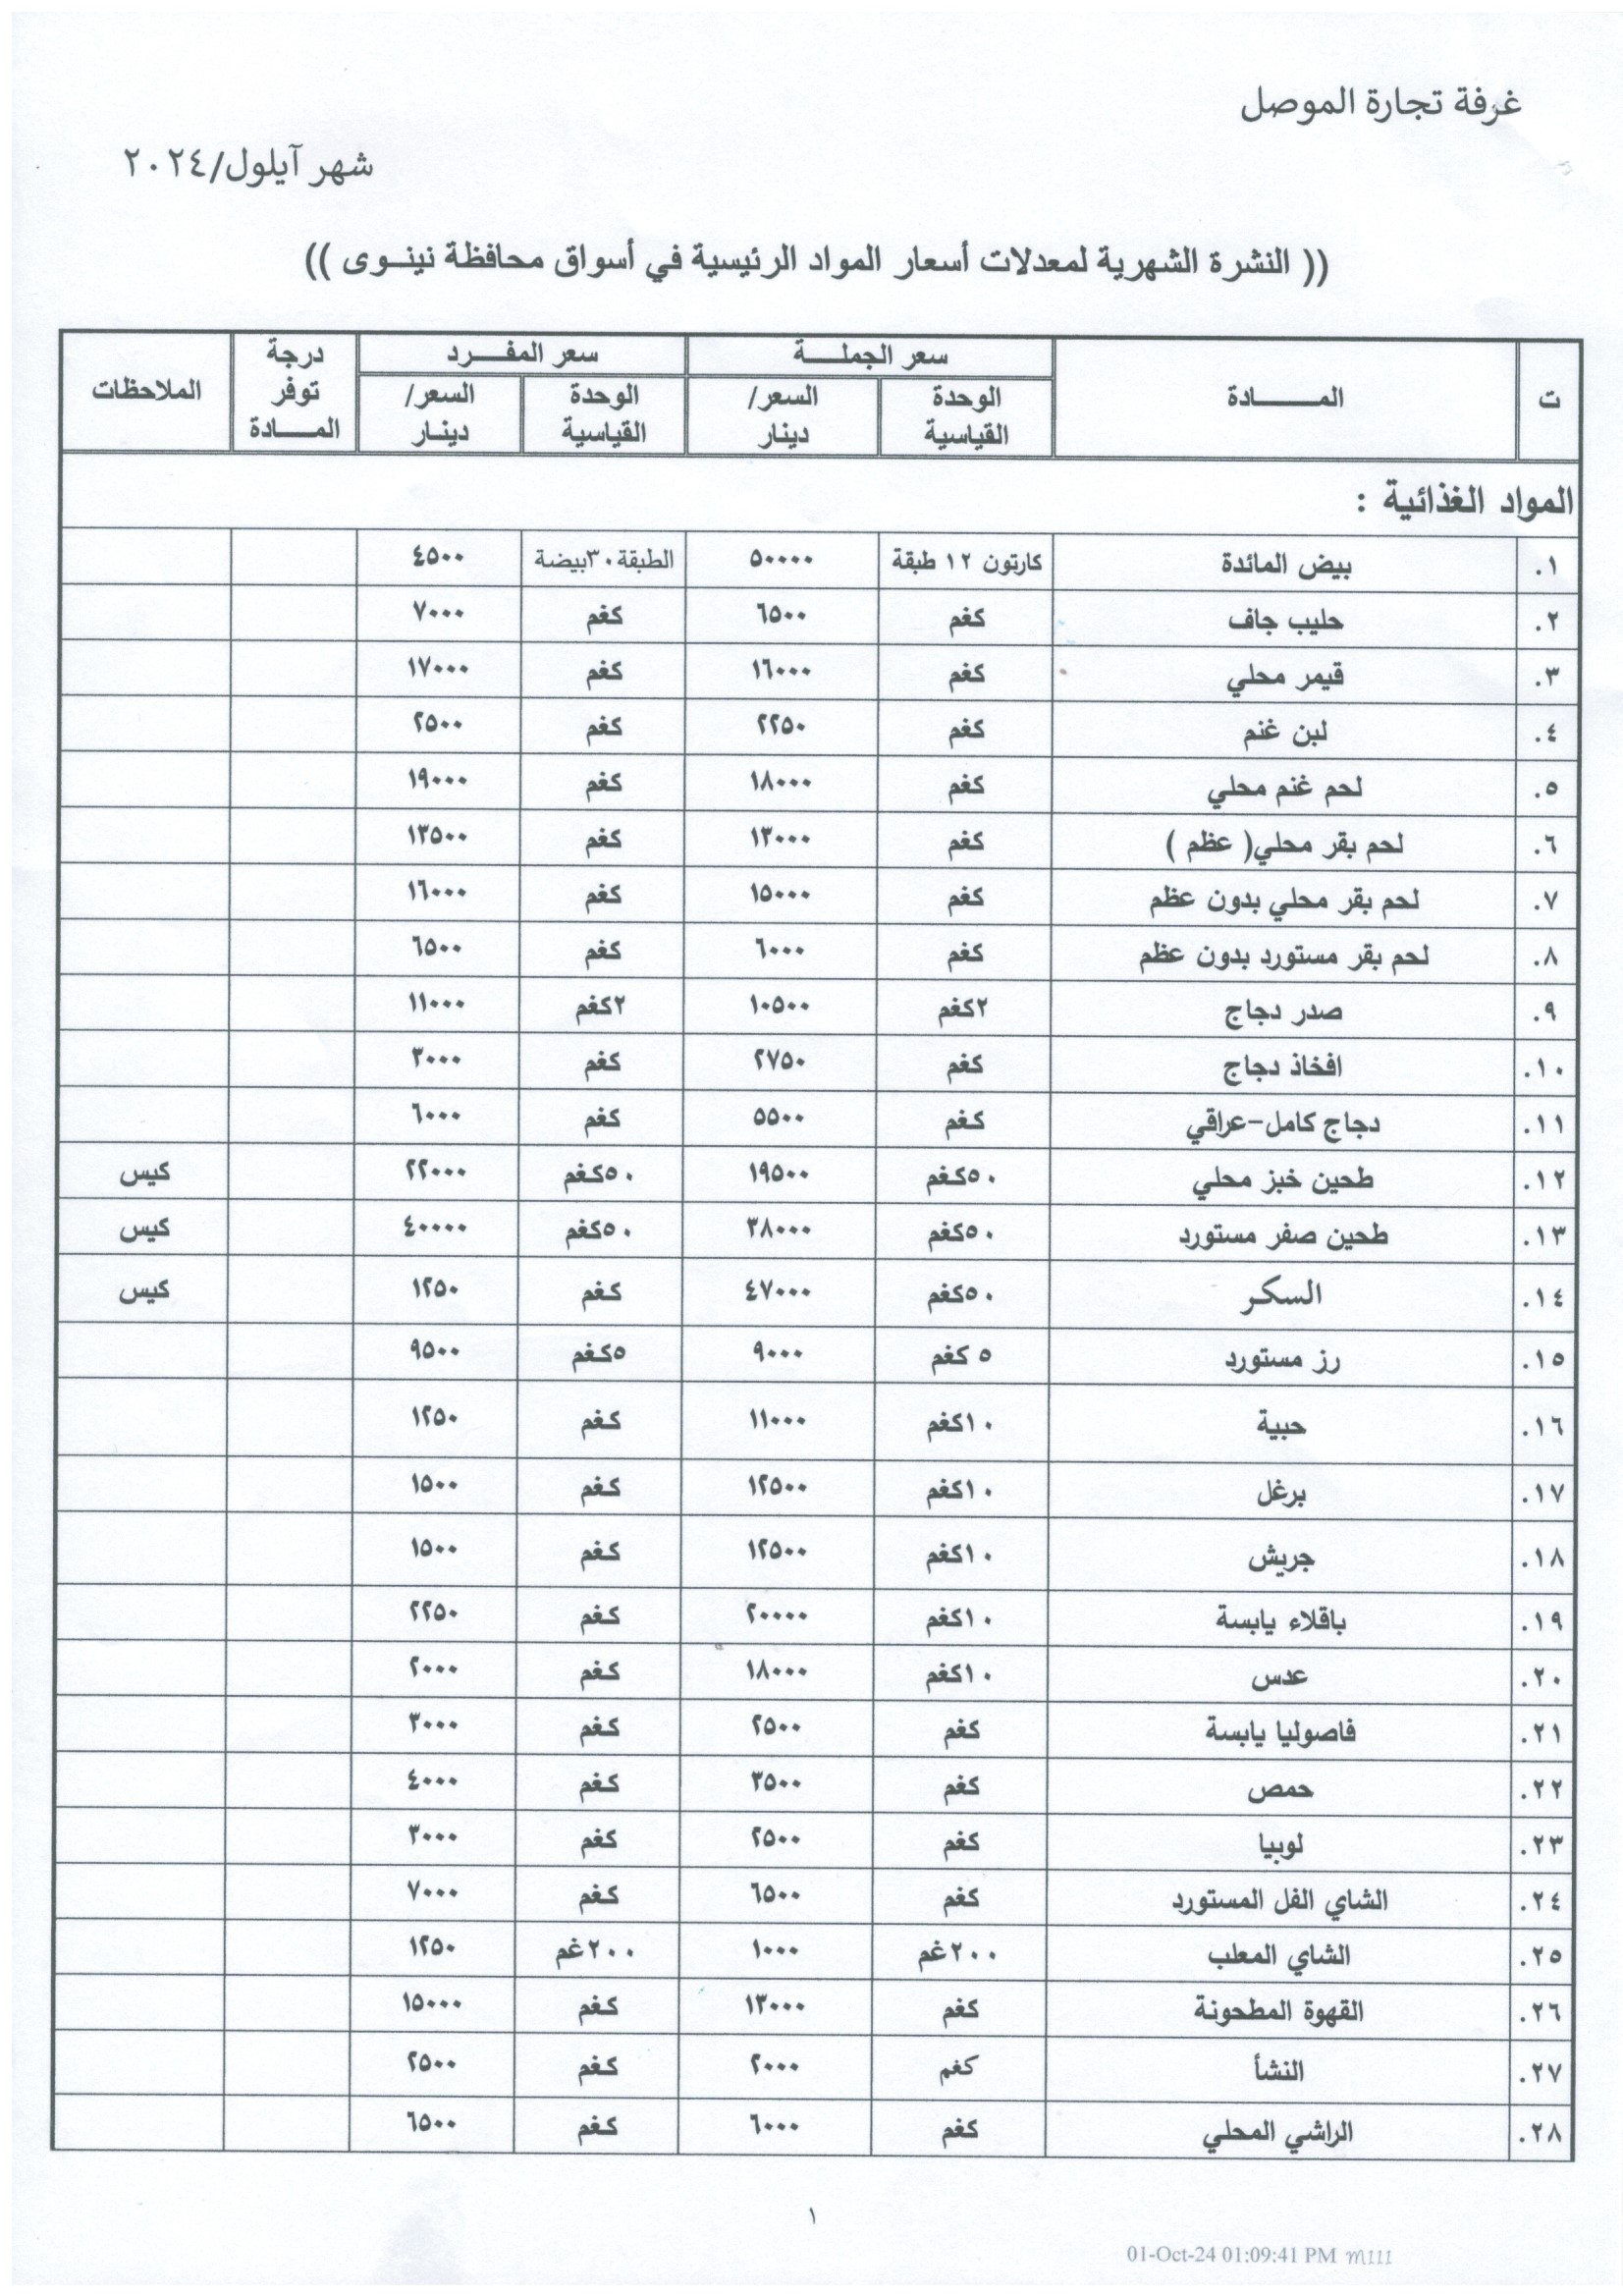 غرفة تجارة الموصل
شهر آيلول/٢٠٢٤
(( النشرة الشهرية لمعدلات أسعار المواد الرئيسية في أسواق محافظة نينــوى ))
ت المـــــــادة سعر الجملــــة سعر المفــــرد درجة توفر المـــادة الملاحظات
الوحدة القياسية السعر/ دينار الوحدة القياسية السعر/ دينـار
المواد الغذائية :
١. بيض المائدة كارتون ١٢ طبقة ٥٠٠٠٠ الطبقة٣٠بيضة ٤٥٠٠
٢. حليب جاف كغم ٦٥٠٠ كغم ٧٠٠٠
٣. قيمر محلي كغم ١٦٠٠٠ كغم ١٧٠٠٠
٤. لبن غنم كغم ٢٢٥٠ كغم ٢٥٠٠
٥. لحم غنم محلي كغم ١٨٠٠٠ كغم ١٩٠٠٠
٦. لحم بقر محلي( عظم ) كغم ١٣٠٠٠ كغم ١٣٥٠٠
٧. لحم بقر محلي بدون عظم كغم ١٥٠٠٠ كغم ١٦٠٠٠
٨. لحم بقر مستورد بدون عظم كغم ٦٠٠٠ كغم ٦٥٠٠
٩. صدر دجاج ٢كغم ١٠٥٠٠ ٢كغم ١١٠٠٠
١٠. افخاذ دجاج كغم ٢٧٥٠ كغم ٣٠٠٠
١١. دجاج كامل-عراقي كغم ٥٥٠٠ كغم ٦٠٠٠
١٢. طحين خبز محلي ٥٠كغم ١٩٥٠٠ ٥٠كغم ٢٢٠٠٠ كيس
١٣. طحين صفر مستورد ٥٠كغم ٣٨٠٠٠ ٥٠كغم ٤٠٠٠٠ كيس
١٤. السكر ٥٠كغم ٤٧٠٠٠ كغم ١٢٥٠ كيس
١٥. رز مستورد ٥ كغم ٩٠٠٠ ٥كغم ٩٥٠٠
١٦. حبية ١٠كغم ١١٠٠٠ كغم ١٢٥٠
١٧. برغل ١٠كغم ١٢٥٠٠ كغم ١٥٠٠
١٨. جريش ١٠كغم ١٢٥٠٠ كغم ١٥٠٠
١٩. باقلاء يابسة ١٠كغم ٢٠٠٠٠ كغم ٢٢٥٠
٢٠. عدس ١٠كغم ١٨٠٠٠ كغم ٢٠٠٠
٢١. فاصوليا يابسة كغم ٢٥٠٠ كغم ٣٠٠٠
٢٢. حمص كغم ٣٥٠٠ كغم ٤٠٠٠
٢٣. لوبيا كغم ٢٥٠٠ كغم ٣٠٠٠
٢٤. الشاي الفل المستورد كغم ٦٥٠٠ كغم ٧٠٠٠
٢٥. الشاي المعلب ٢٠٠غم ١٠٠٠ ٢٠٠غم ١٢٥٠
٢٦. القهوة المطحونة كغم ١٣٠٠٠ كغم ١٥٠٠٠
٢٧. النشأ كغم ٢٠٠٠ كغم ٢٥٠٠
٢٨. الراشي المحلي كغم ٦٠٠٠ كغم ٦٥٠٠
١
01-Oct-24 01:09:41 PM m111